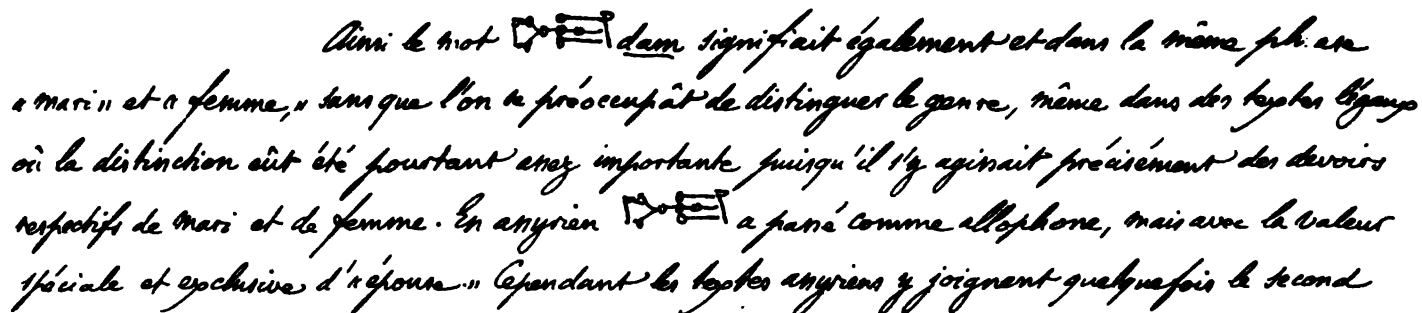 Ainsi le mot 𒁮 dam signifiait également et dans la même phrase
« mari » et « femme, » sans que l'on se préoccupât de distinguer le genre, même dans des textes légaux
où la distinction eût été pourtant assez importante puisqu'il s'y agissait précisément des devoirs
respectifs de mari et de femme. En assyrien 𒁮 a passé comme allophone, mais avec la valeur
spéciale et exclusive d'« épouse. » Cependant les textes assyriens y joignent quelquefois le second